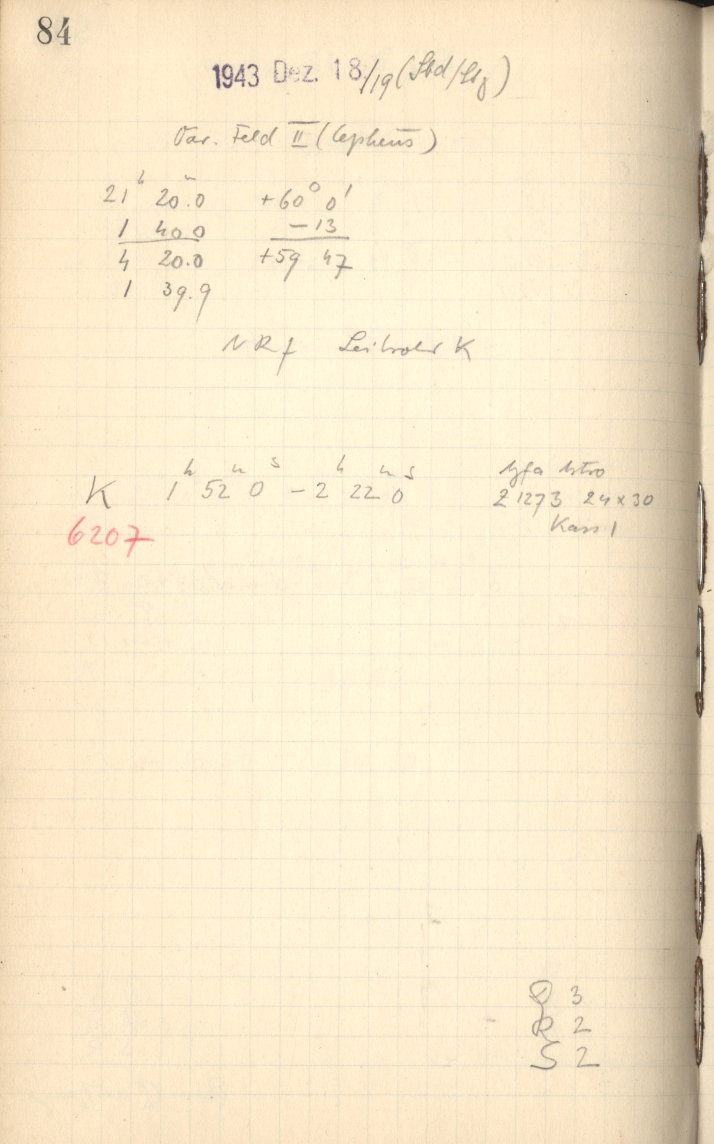 84
1943 Dez. 18/19 (Sbd/Stg)
Var. Feld II (Cepheus)
21h 20m.0 +60° 0'
1 40 0 -13
4 20.0 +59 47
1 39.9
NRf Leitrohr K
K 1h 52m 0s - 2h 22m 0s
Agfa Astro
Z 1273 24x30
Kass 1
6207
3
R 2
S 2